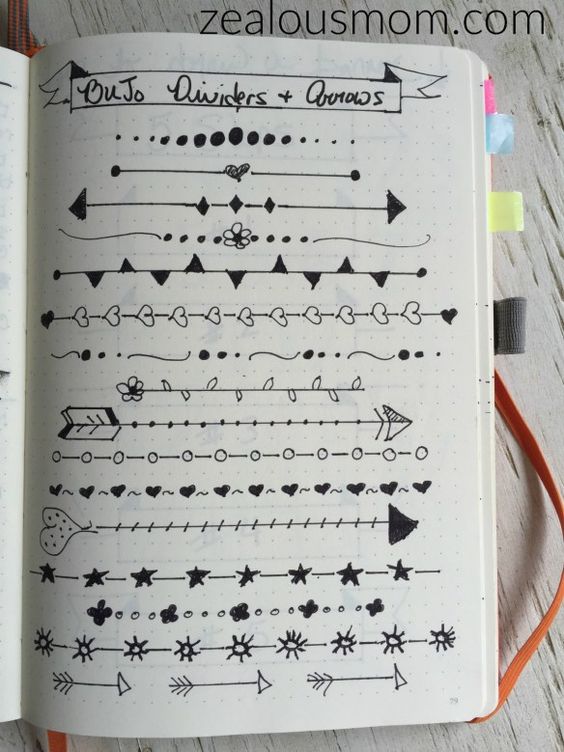 zealousmom.com
BuJo Dividers + Arrows
79